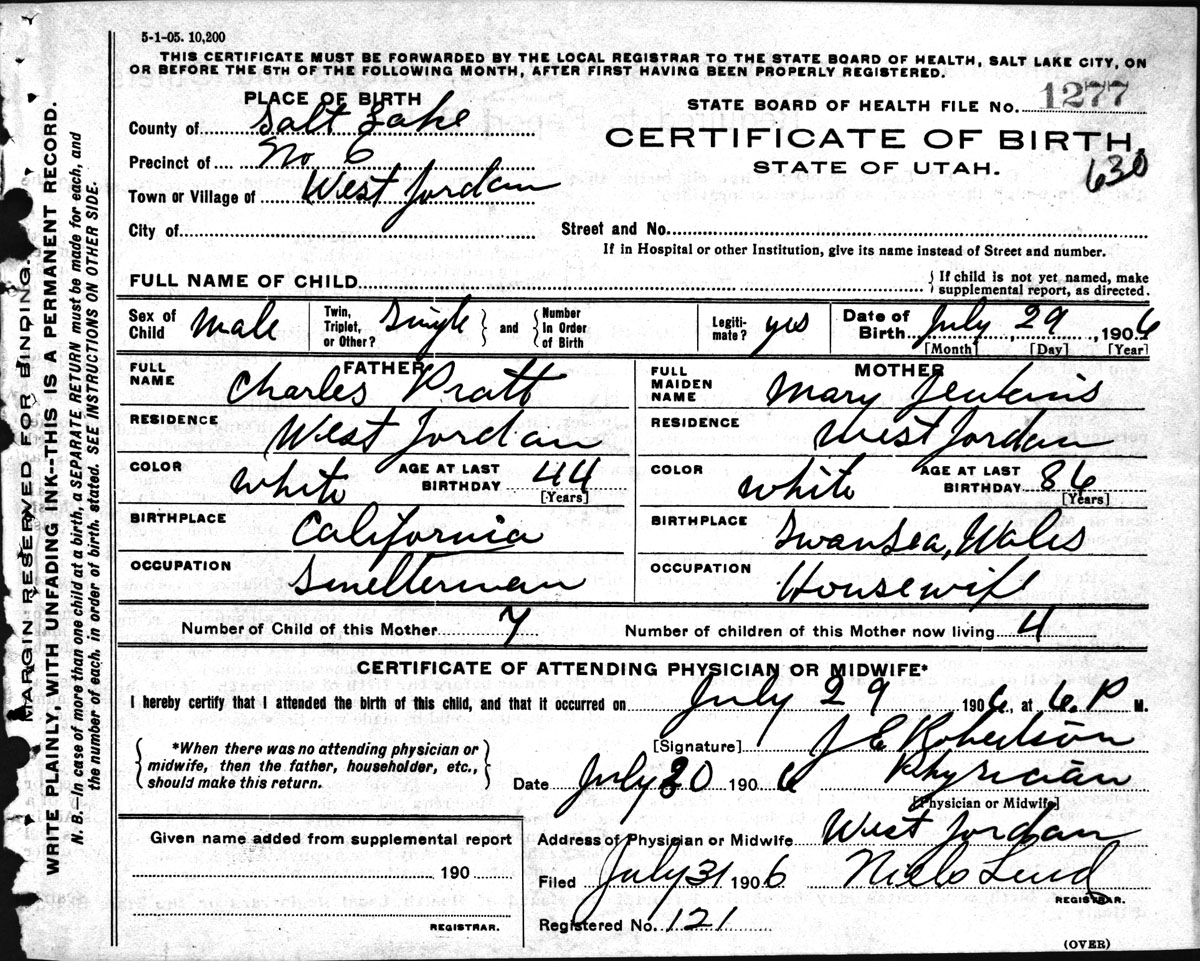 5-1-05. 10,200
THIS CERTIFICATE MUST BE FORWARDED BY THE LOCAL REGISTRAR TO THE STATE BOARD OF HEALTH, SALT LAKE CITY, ON
OR BEFORE THE 5TH OF THE FOLLOWING MONTH, AFTER FIRST HAVING BEEN PROPERLY REGISTERED.
PLACE OF BIRTH
County of Salt Lake
Precinct of No 6
Town or Village of West Jordan
City of
STATE BOARD OF HEALTH FILE NO. 1277
CERTIFICATE OF BIRTH,
STATE OF UTAH.
630
Street and No.
If in Hospital or other Institution, give its name instead of Street and number.
FULL NAME OF CHILD
{If child is not yet named, make
supplemental report, as directed.
Sex of Child Male
Twin, Triplet, or Other? Single } and { Number In Order of Birth
Legiti-mate? yes
Date of Birth July, 29, 1906
[Month] [Day] [Year]
FATHER
FULL NAME Charles Pratt
RESIDENCE West Jordan
COLOR white AGE AT LAST BIRTHDAY 44
[Years]
BIRTHPLACE California
OCCUPATION Smelterman
MOTHER
FULL MAIDEN NAME Mary Jenkins
RESIDENCE West Jordan
COLOR white AGE AT LAST BIRTHDAY 36
[Years]
BIRTHPLACE Swansea, Wales
OCCUPATION Housewife
Number of Child of this Mother 7
Number of children of this Mother now living 4
CERTIFICATE OF ATTENDING PHYSICIAN OR MIDWIFE*
I hereby certify that I attended the birth of this child, and that it occurred on July 29 1906, at 6.P M.
{*When there was no attending physician or
midwife, then the father, householder, etc.,
should make this return.}
[Signature] J E Robertson
Date July 30 1906 Physician
[Physician or Midwife]
Address of Physician or Midwife West Jordan
Filed July 31 1906 Niels Lind
REGISTRAR.
Registered No. 121
Given name added from supplemental report
190
REGISTRAR.
(OVER)
MARGIN RESERVED FOR BINDING.
WRITE PLAINLY, WITH UNFADING INK--THIS IS A PERMANENT RECORD.
N. B.—In case of more than one child at a birth, a SEPARATE RETURN must be made for each, and
the number of each, in order of birth, stated. SEE INSTRUCTIONS ON OTHER SIDE.